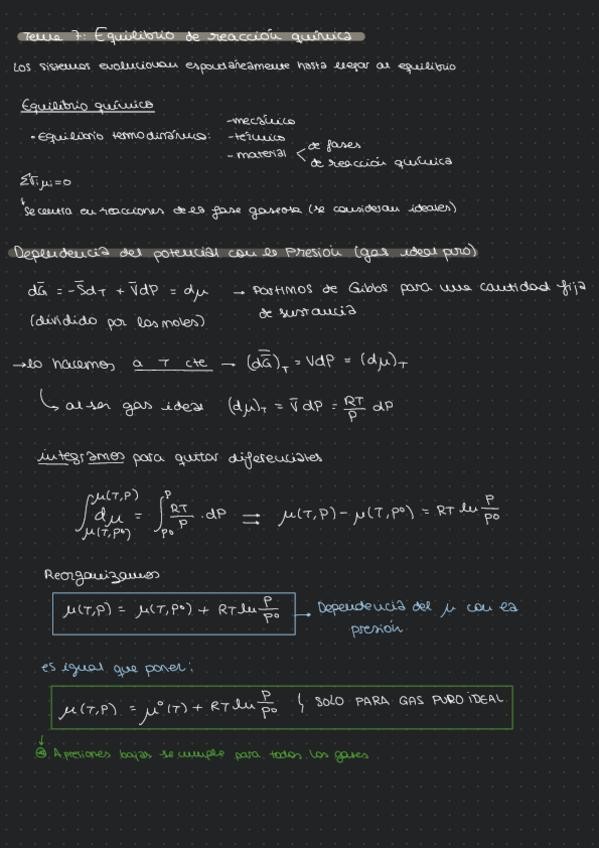 Tema 7: Equilibrio de reacción química
Los sistemas evolucionan espontáneamente hasta llegar al equilibrio
Equilibrio químico
- Equilibrio termodinámico:
- mecánico
- térmico
- material < de fases
de reacción química
Σν̄ᵢμᵢ=0
Se centra en reacciones de la fase gaseosa (se consideran ideales)
Dependencia del potencial con la Presión (gas ideal puro)
dG̅ = -S̅dT + V̅dP = dμ → Partimos de Gibbs para una cantidad fija
(dividido por los moles) de sustancia
→ lo hacemos a T cte → (dG̅)_T = VdP = (dμ)_T
↳ al ser gas ideal (dμ)_T = V̅dP = RT/P dP
integramos para quitar diferenciales
∫_{μ(T,Pº)}^{μ(T,P)} dμ = ∫_{Pº}^{P} RT/P · dP ⇒ μ(T,P) - μ(T,Pº) = RT ln P/Pº
Reorganizamos
μ(T,P) = μ(T,Pº) + RT ln P/Pº → Dependencia del μ con la
presión
es igual que poner:
μ(T,P) = μº(T) + RT ln P/Pº { SOLO PARA GAS PURO IDEAL
A presiones bajas se cumple para todos los gases